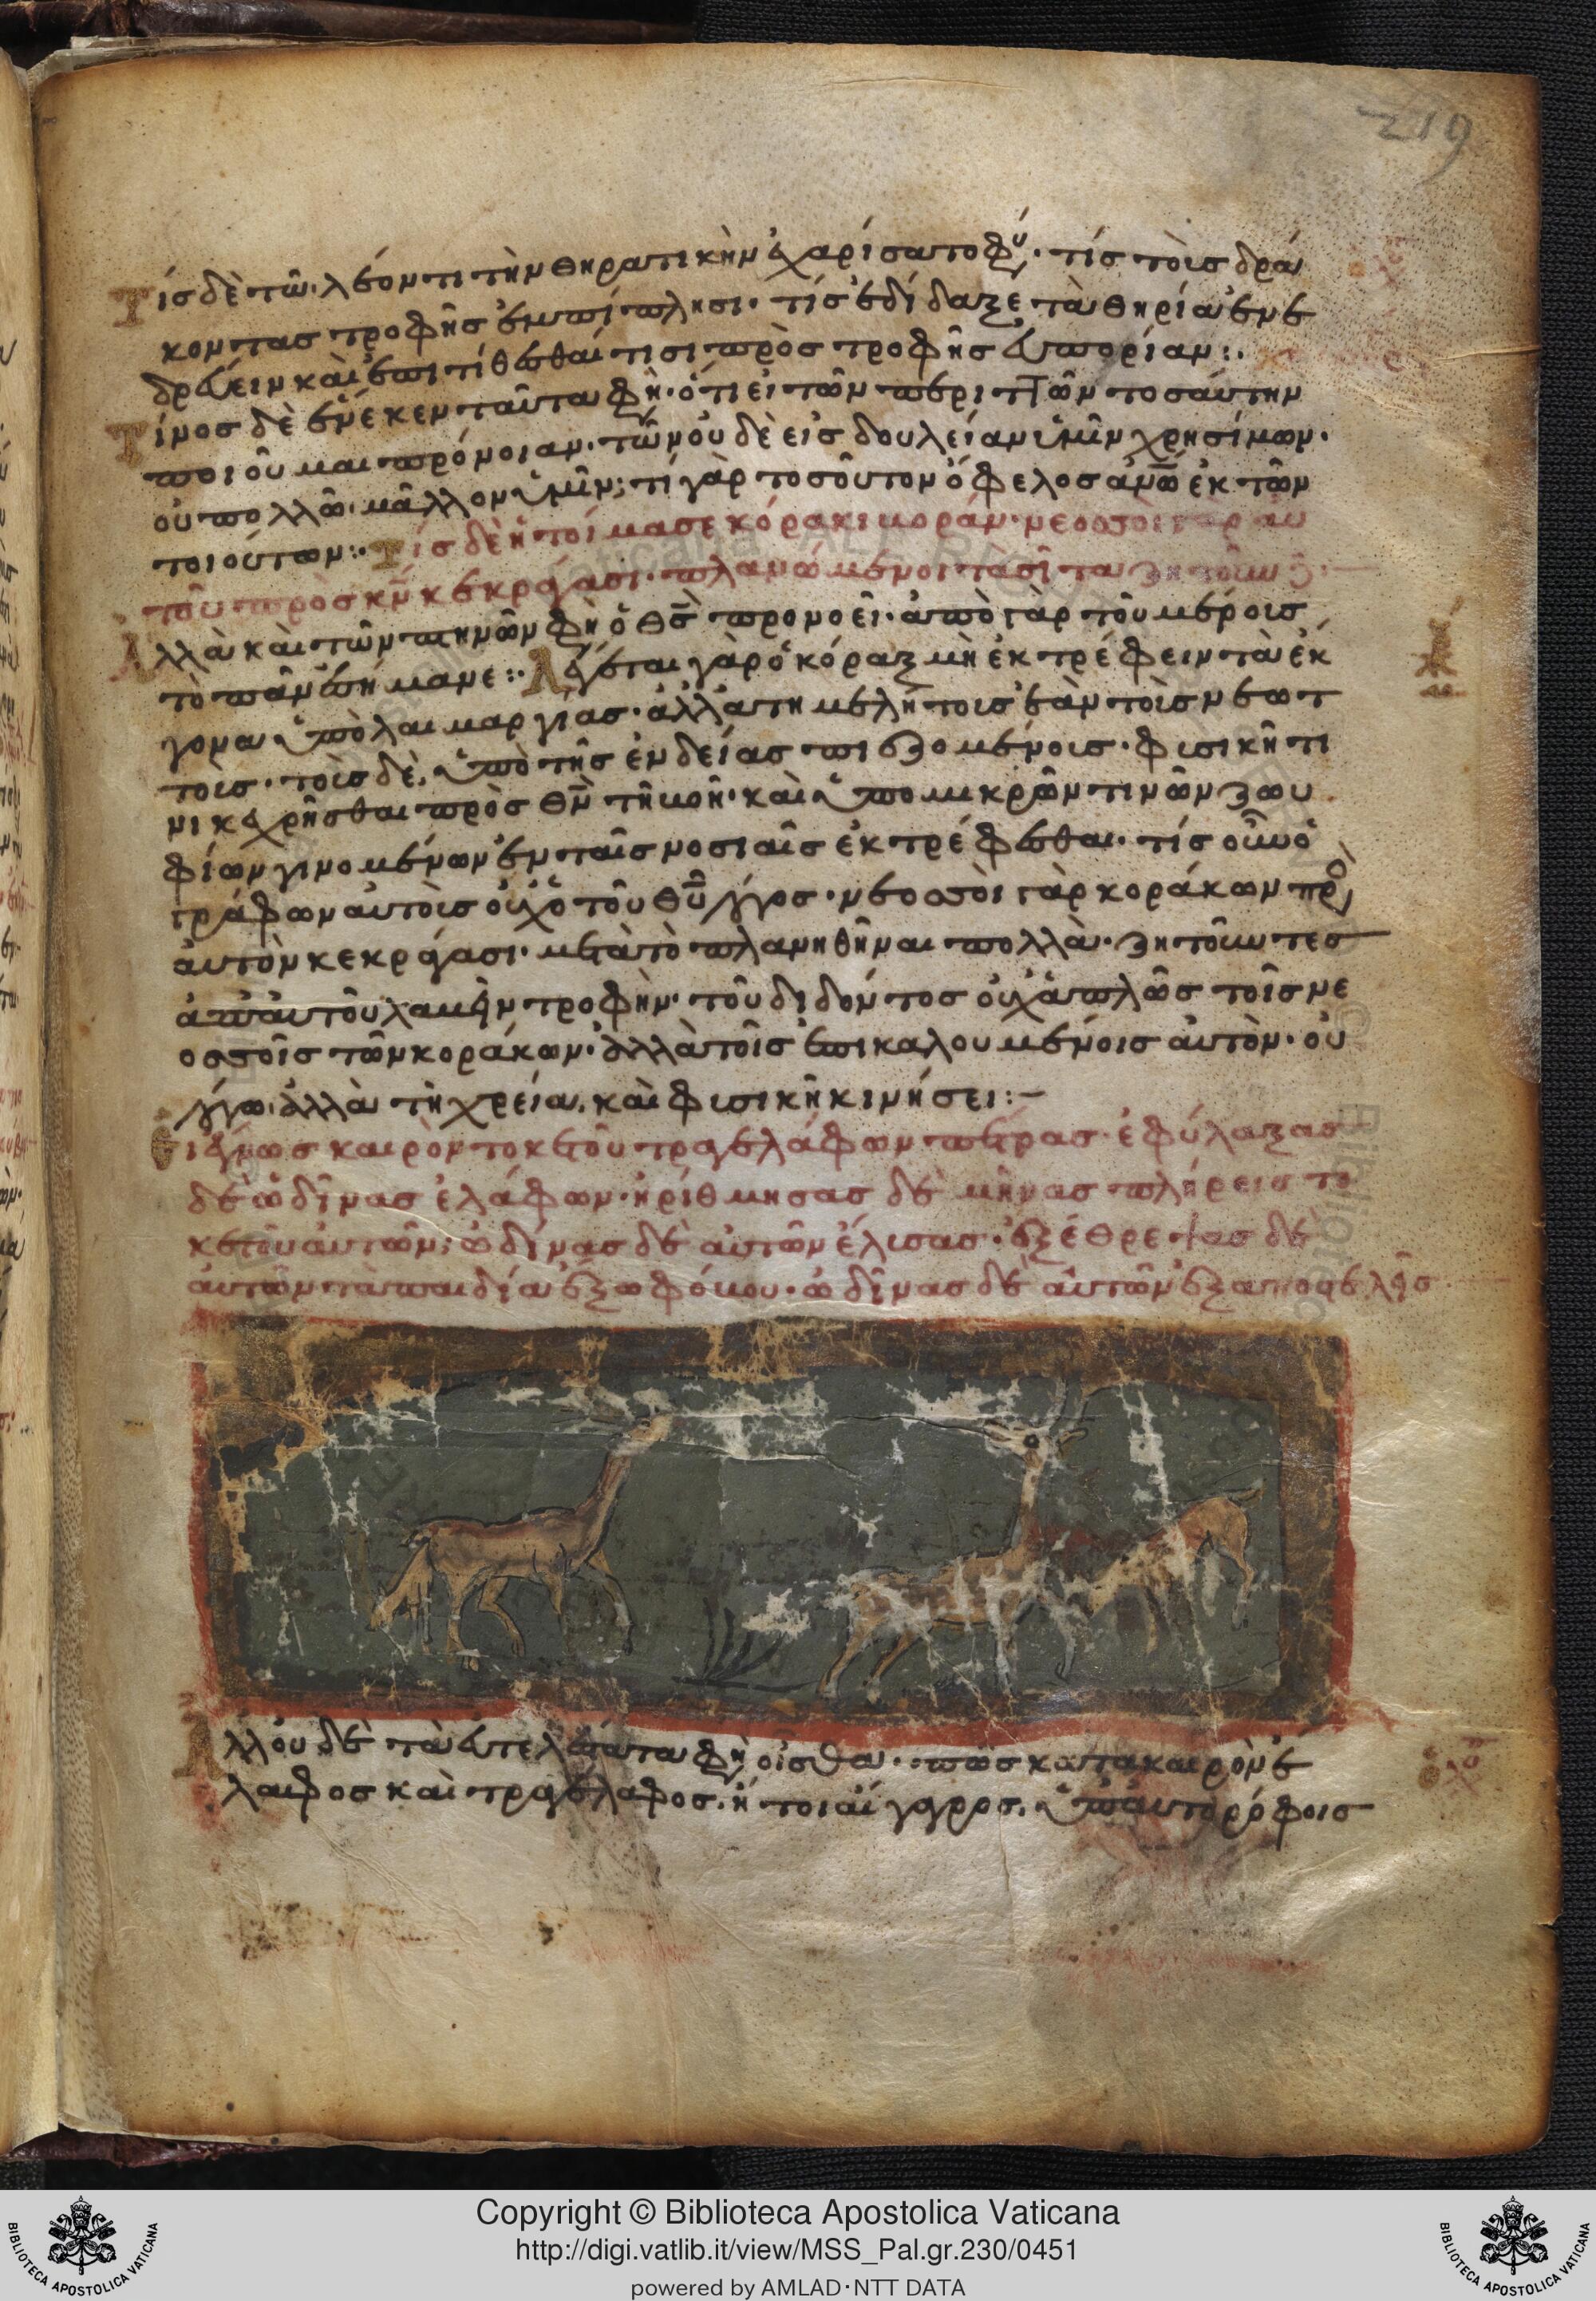 219
Τίσ δὲ τῶ λέοντι τὴν θηρατικὴν ἐχαρίσατο φύ· τίσ τοῖσ δρά
κοντασ τροφῆσ ἐμπίπλησι· τίσ ἐδίδαξε τὰ θηρία ἐνε
δρεύειν καὶ ἐπιτίθεσθαί τισι πρὸσ τροφῆσ εὐπορίαν:·
Τίνοσ δὲ ἕνεκεν ταῦτα φη· ὅτι εἰ τῶν περιττῶν τοσαύτην
ποιοῦμαι πρόνοιαν· τῶν οὐδὲ εἰσ δουλείαν ὑμῖν χρησίμων·
οὐ πολλῶ μᾶλλον ὑμῖν; τί γὰρ τοσοῦτον ὄφελοσ ἀνω ἐκ τῶν
τοιούτων:· Τίσ δὲ ἡτοίμασε κόρακι βοράν· νεοσσοὶ γὰρ αυ
τοῦ πρὸσ κν κεκράγασι· πλανώμενοι τὰ σῖτα ζητοῦν
Ἀλλὰ καὶ τῶν πτηνῶν φη ὁ θσ προνοεῖ· ἀπὸ γὰρ τοῦ μέρουσ
τὸ πᾶν ἐσήμανε:· Λέγεται γὰρ ὁ κόραξ μὴ ἐκτρέφειν τὰ ἔκ
γονα ὑπὸ λαιμαργίασ· ἀλλ' ἀτημελήτοισ ἐὰν τοῖσ νεοτ
τοῖσ· τοῖσ δὲ, ὑπὸ τῆσ ἐνδείασ πιεζομένοισ· φυσικῆ τι
νι κεχρῆσθαι πρὸσ θν τῆ βοῆ· καὶ ὑπὸ μικρῶν τινῶν ζωυ
φίων γινομένων ἐν ταῖσ νοσιαῖσ ἐκτρέφεσθαι· τίσ οὖν ὁ
τρέφων αὐτοῖσ οὐχ ὁ τοῦ θυ λγοσ· νεοσσοὶ γὰρ κοράκων πρὸ
αὐτὸν κεκράγασι· μετὰ τὸ πλανηθῆναι πολλὰ· ζητοῦντεσ
ἀπ' αὐτοῦ λαβεῖν τροφὴν· τοῦ διδόντοσ οὐχ ἁπλῶσ τοῖσ νε
οσσοῖσ τῶν κοράκων· ἀλλὰ τοῖσ ἐπικαλουμένοισ αὐτὸν· οὐ
λγω ἀλλὰ τῆ χρεία, καὶ φυσικῆ κινήσει:–
Εἰ ἔγνωσ καιρὸν τοκετοῦ τραγελάφων πέτρασ· ἐφύλαξασ
δὲ ὠδῖνασ ἐλάφων· ἠρίθμησασ δὲ μῆνασ πλήρεισ το
κετοῦ αὐτῶν; ὠδῖνασ δὲ αὐτῶν ἔλυσασ· ἐξέθρεψασ δὲ
αὐτῶν τὰ παιδία ἔξω φόβου· ὠδῖνασ δὲ αὐτῶν ἐξαποστελεῖσ
Ἀλλ' οὐδὲ τὰ εὐτελέστατα φη οἶσθα· πῶσ κατὰ καιρὸν ἔ
λαφοσ καὶ τραγέλαφοσ, ἤτοι αἴγαγροσ, ὑπ' αὐτορόφοισ
Copyright © Biblioteca Apostolica Vaticana
http://digi.vatlib.it/view/MSS_Pal.gr.230/0451
powered by AMLAD·NTT DATA
BIBLIOTECA APOSTOLICA VATICANA
BIBLIOTECA APOSTOLICA VATICANA